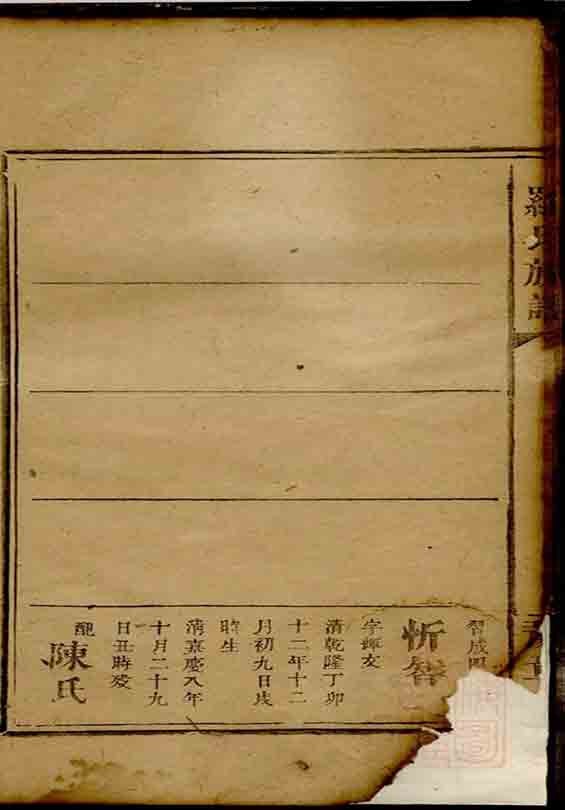 羅氏族譜
智成
忻智
字輝文
清乾隆丁卯
十二年十二
月初九日戌
時生
清嘉慶八年
十月二十九
日丑時歿
配
陳氏